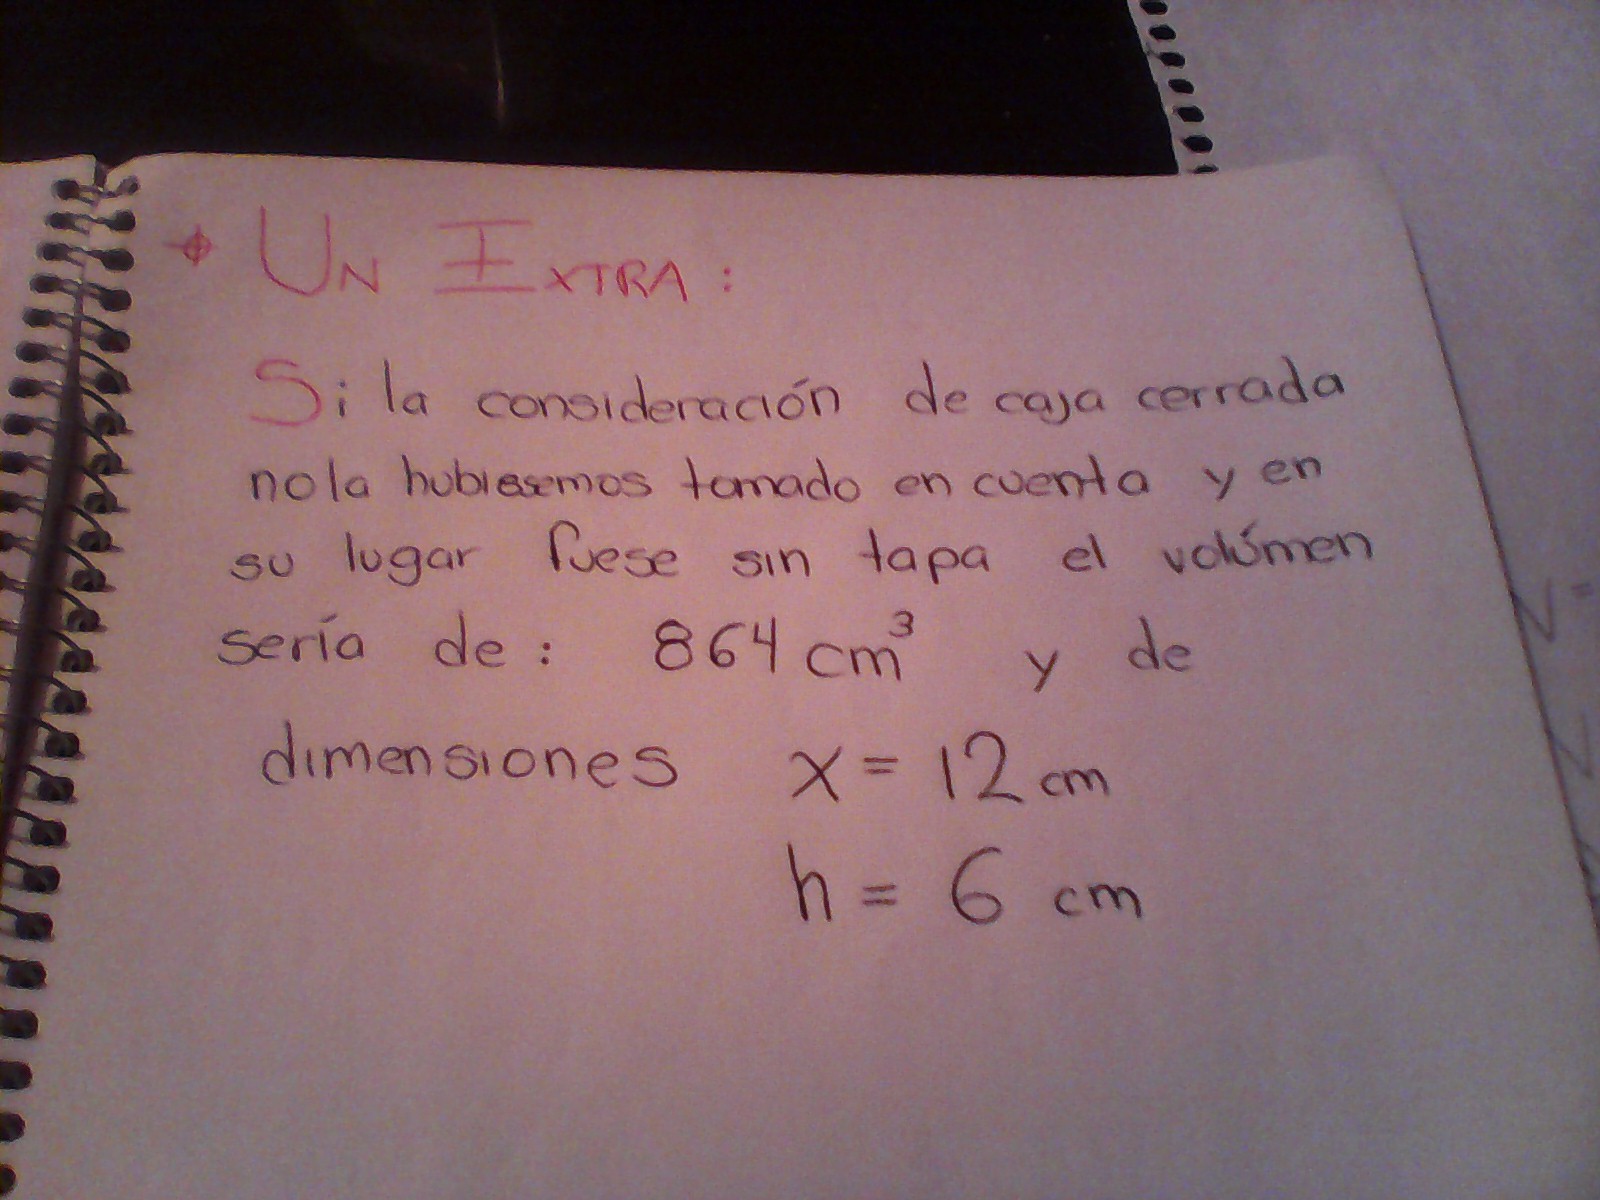 Un Extra:
Si la consideración de caja cerrada
no la hubiesemos tomado en cuenta y en
su lugar fuese sin tapa el volúmen
sería de: 864 cm³ y de
dimensiones x = 12 cm
h = 6 cm